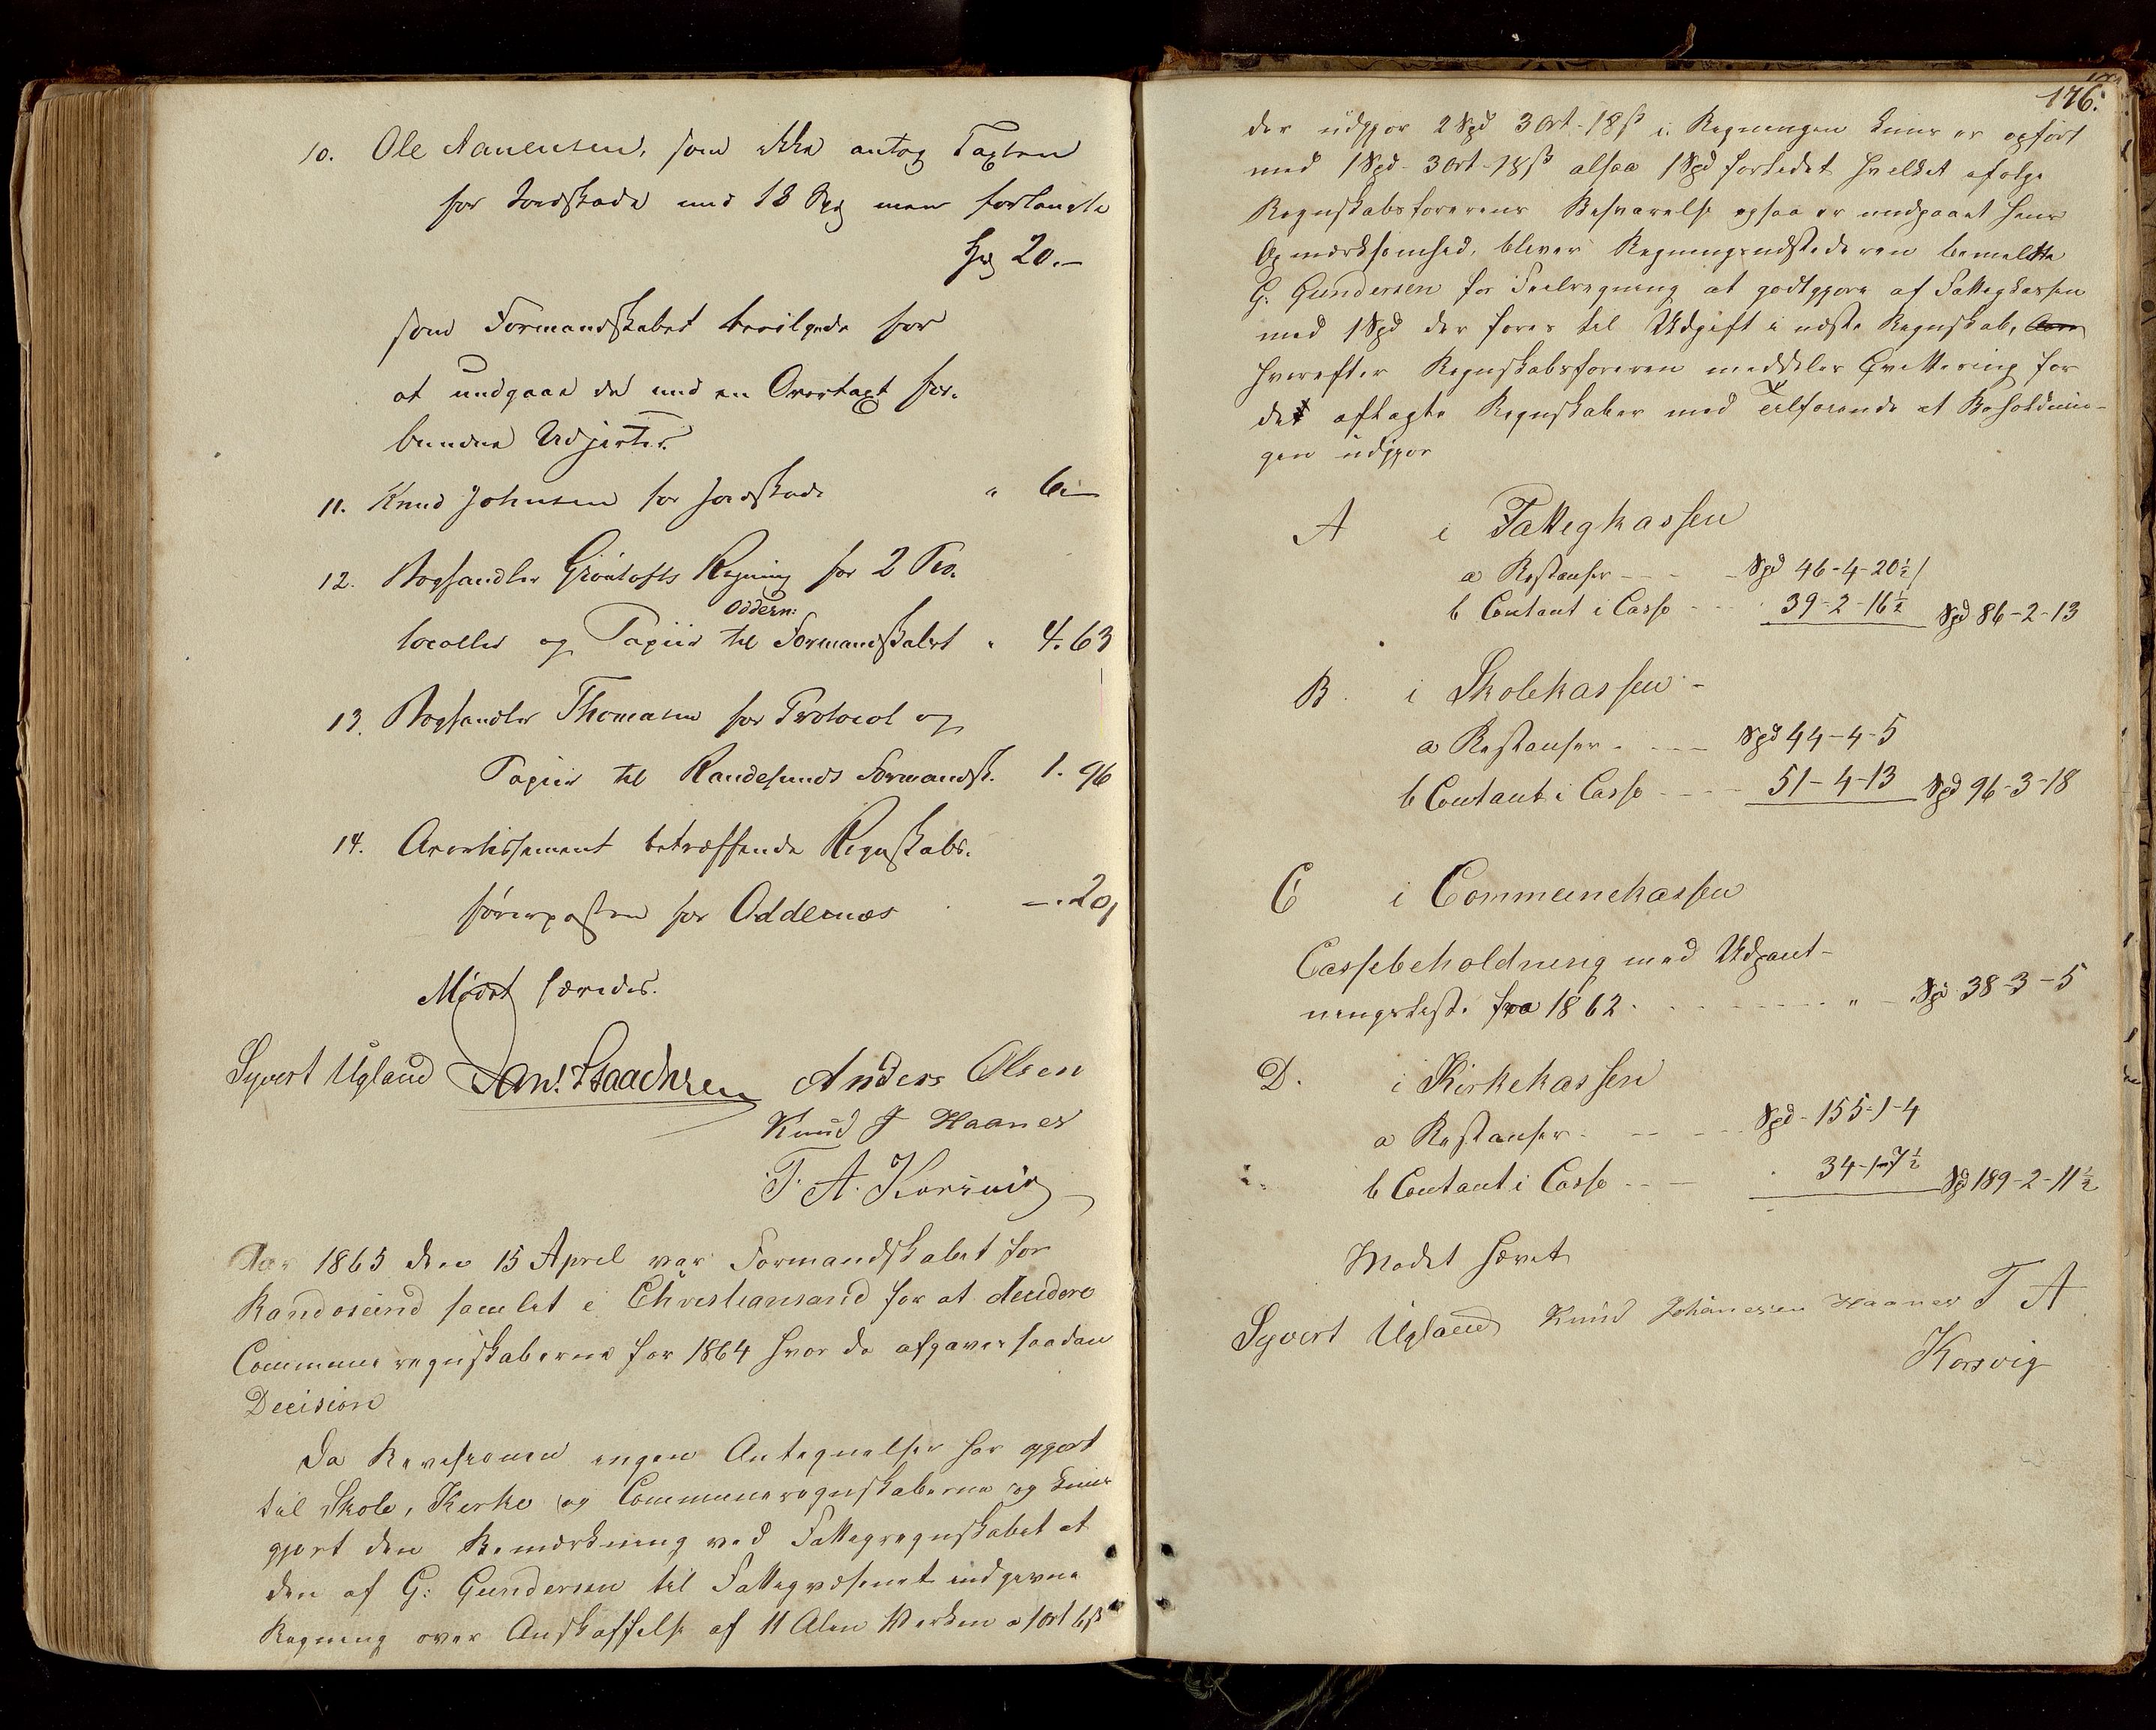 10. Ole Aanensen, som ikke antog Taxten
for Jordskade med 18 Spd men forlangte
Spd 20.—
som Formandskabet bevilgede for
at undgaae de med en Overtaxt for-
bundne Udgifter.
11. Knud Johnsen for Jordskade " 6.—
12. Boghandler Grøntofts Regning for 2 Pro-
Oddern:
tocoller og Papiir til Formandskabet " 4.63
13. Boghandler Thomasen for Protocol og
Papiir til Randesunds Formandsk. 1.96
14. Avertissement betræffende Regnskabs-
førerposten for Oddernæs —.20
Mødet hævedes.
Syvert Ugland Dan. Isaachsen Anders Olsen
Knud J Haanes
T. A. Korsvig
Aar 1865 den 15 April var Formandskabet for
Randøsund samlet i Christiansand for at decidere
Communeregnskaberne for 1864 hvor da afgaves saadan
Decision
Da Revisionen ingen Antegnelser har gjort
til Skole, Kirke og Communeregnskaberne og kuns
gjort den Bemærkning ved Fattigregnskabet at
den af G: Gundersen til Fattigvæsenet indgivne
Regning over Anskaffelse af 11 Alen Værken a 1 Ort 6 ß
176.
der udgjør 2 Spd 3 Ort - 18 ß i Regningen kuns er opført
med 1 Spd - 3 Ort - 18 ß alsaa 1 Spd forlidet hvilket efølge
Regnskabsførerens Besvarelse ogsaa er undgaaet hans
Opmærksomhed, bliver Regningsudstederen bemeldte
G. Gundersen for Feilregning at godtgjøre af Fattigkassen
med 1 Spd der føres til Udgift i næste Regnskab,
hvorefter Regnskabsføreren meddeles Qvittering for
det aflagte Regnskaber med Tilføiende at Beholdnin-
gen udgjør
A i Fattigkassen
a Restanser - - - - Spd 46-4-20½
b Contant i Casse - - - 39-2-16½ Spd 86-2-13
B. i Skolekassen -
a Restanser - - - - Spd 44-4-5
b Contant i Casse - - - - 51-4-13 Spd 96-3-18
C i Communekassen
Cassebeholdning med Udpant-
ningsrest. fra 1862 - - - - " - Spd 38-3-5
D. i Kirkekassen
a Restanser - - - - Spd - 155-1-4
b Contant i Casse - - - 34-1-7½ Spd 189-2-11½
Mødet hævet
Syvert Ugland Knud Johanesen Haanes T A
Korsvig